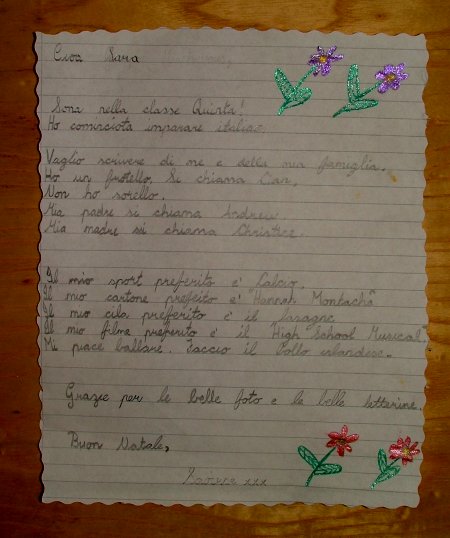 Ciao Sara
Sono nella classe Quinta!
Ho cominciato imparare italiano.
Voglio scrivere di me e della mia famiglia.
Ho un fratello. Si chiama Cian.
Non ho sorello.
Mia padre si chiama Andrew.
Mia madre si chiama Christine.
Il mio sport preferito e' Calcio.
Il mio cartone prefeito e' "Hannah Montacha"
Il mio ciba preferito e' il lasagne.
Il mio filme preferito e' il "High School Musical"
Mi piace ballare. Faccio il ballo irlandese.
Grazie per le belle foto e le belle letterine.
Buon Natale,
xxx